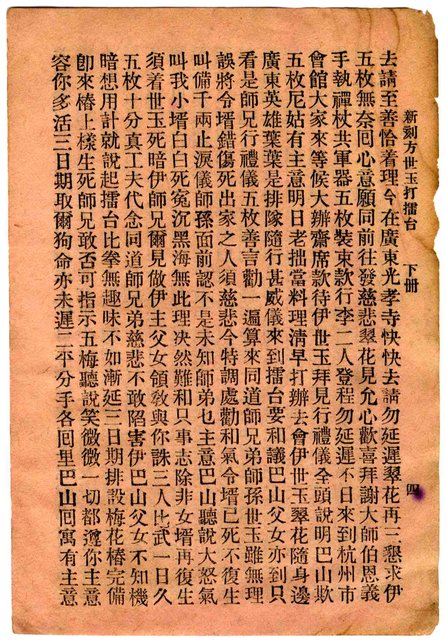 新刻方世玉打擂台
下冊
四
去請至善恰着理今在廣東光孝寺快快去請勿延遲翠花再三懇求伊
五枚無奈囘心意願同前往發慈悲翠花見允心歡喜拜謝大師伯恩義
手執禪杖共軍器五枚裝束款行李二人登程勿延遲不日來到杭州市
會館大家來等候大辦齋席款待伊世玉拜見行禮儀全頭說明巴山欺
五枚尼姑有主意明日老拙當料理清早打辦去會伊世玉翠花隨身邊
廣東英雄葉葉是排隊隨行甚威儀來到擂台要和議巴山父女亦到只
看是師兄行禮儀五枚善言勸一遍算來同道師兄弟師孫世玉雖無理
誤將令壻錯傷死出家之人須慈悲今特調處勸和氣令壻已死不復生
叫備千兩止淚儀師孫面前認不是未知師弟乜主意巴山聽說大怒氣
叫我小壻白白死寃沉黑海無此理决然難和只事志除非女壻再復生
須着世玉死暗伊師兄爾見做伊主父女領敎與你誅三人比武一日久
五枚十分真工夫代念同道師兄弟慈悲不敢陷害伊巴山父女不知機
暗想用計就說起擂台比拳無趣味不如漸延三日期排設梅花樁完備
卽來樁上樣生死師兄敢否可指示五梅聽說笑微微一切都遵你主意
容你多活三日期取爾狗命亦未遲二平分手各囘里巴山囘寓有主意